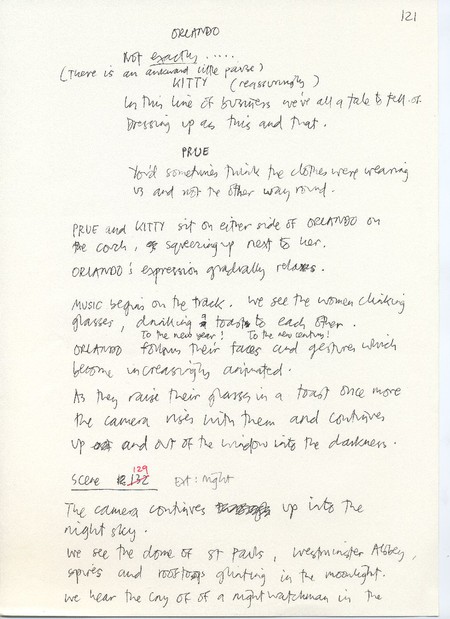 121
ORLANDO
Not exactly .....
(There is an awkward little pause)
KITTY (reassuringly)
In this line of business we've all a tale to tell of.
Dressing up as this and that.
PRUE
You'd sometimes think the clothes were wearing
us and not the other way round.
PRUE and KITTY sit on either side of ORLANDO on
the couch, squeezing up next to her.
ORLANDO's expression gradually relaxes.
MUSIC begins on the track. We see the women clinking
glasses, drinking a toast to each other.
To the new year! To the new century!
ORLANDO follows their faces and gestures which
become increasingly animated.
As they raise their glasses in a toast once more
the camera rises with them and continues
up and out of the window into the darkness.
129
Scene 132 Ext: night
The camera continues up into the
night sky.
We see the dome of St Pauls, Westminster Abbey,
spires and rooftops glinting in the moonlight.
We hear the cry of of a nightwatchman in the